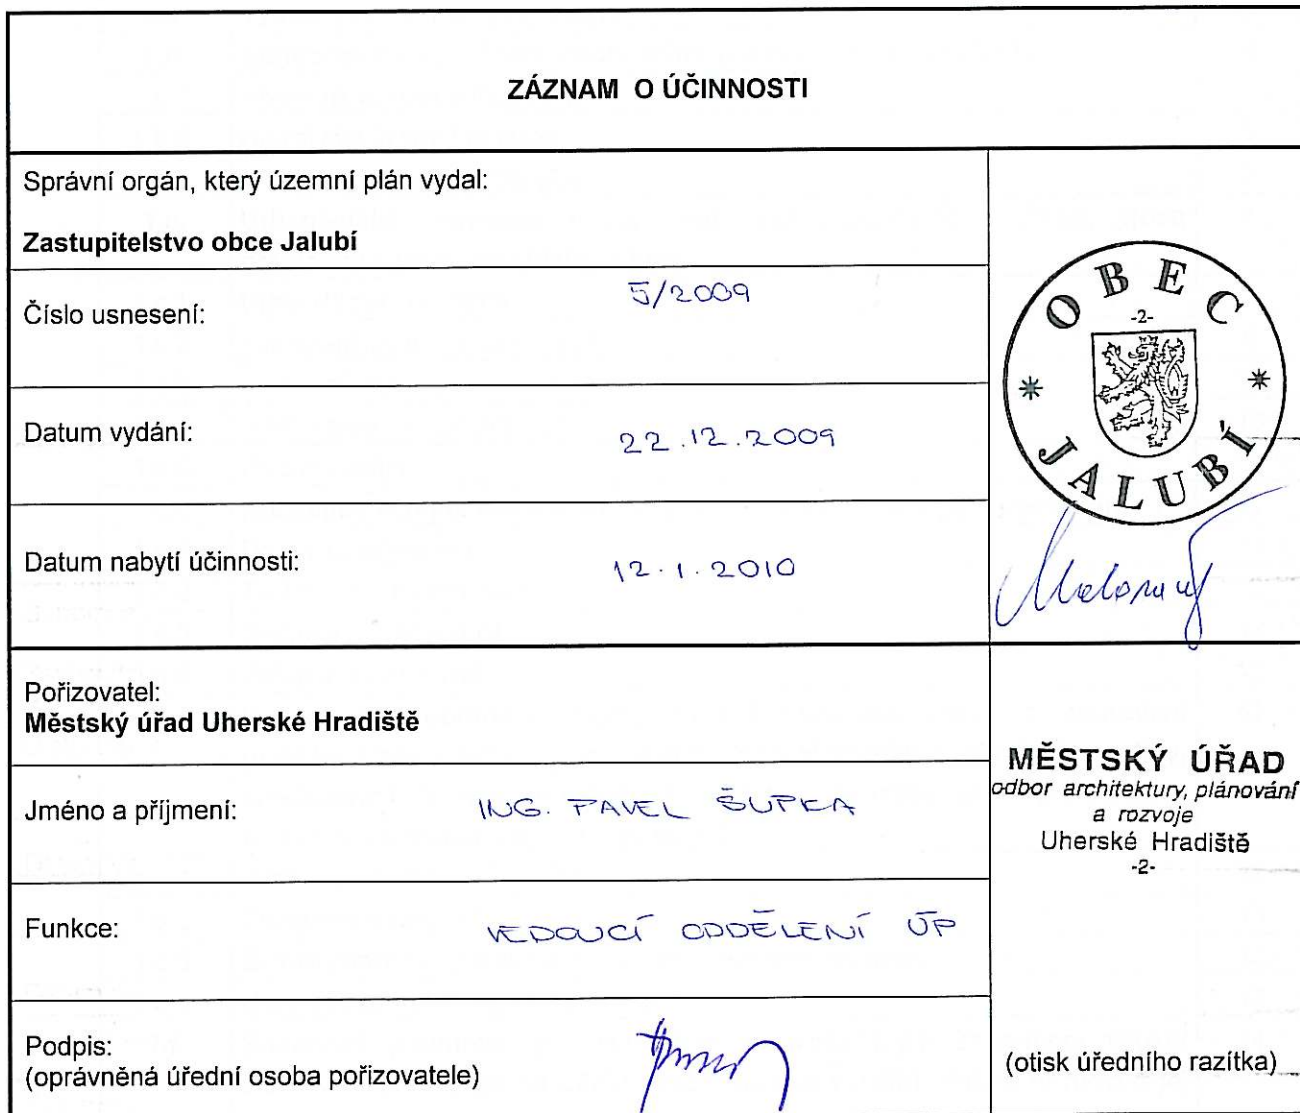 ZÁZNAM O ÚČINNOSTI
Správní orgán, který územní plán vydal:
Zastupitelstvo obce Jalubí
Číslo usnesení:
5/2009
Datum vydání:
22.12.2009
Datum nabytí účinnosti:
12.1.2010
OBEC
-2-
JALUBÍ
Pořizovatel:
Městský úřad Uherské Hradiště
Jméno a příjmení:
ING. PAVEL ŠUPKA
Funkce:
VEDOUCÍ ODDĚLENÍ ÚP
Podpis:
(oprávněná úřední osoba pořizovatele)
MĚSTSKÝ ÚŘAD
odbor architektury, plánování
a rozvoje
Uherské Hradiště
-2-
(otisk úředního razítka)